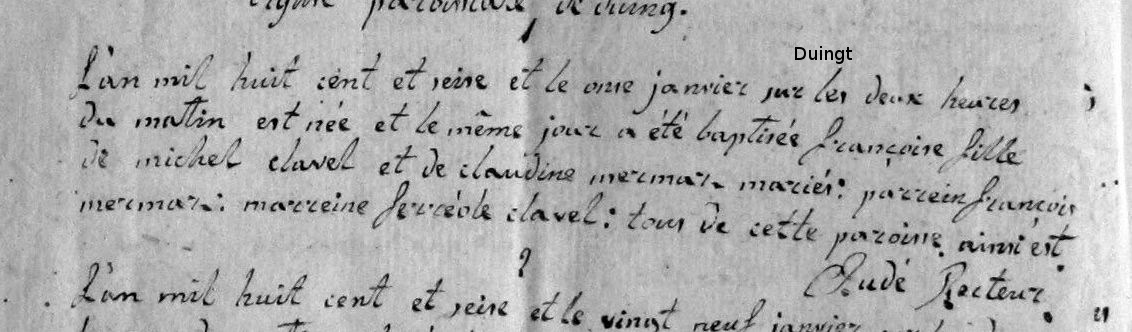 paroissiale de duing.
Duingt
L'an mil huit cent et seise et le onse janvier sur les deux heures
du matin est née et le même jour a été baptisée françoise fille
de michel clavel et de claudine mermaz mariés: parrein françois
mermaz: marreine ferréole clavel: tous de cette paroisse. ainsi est
Recteur
L'an mil huit cent et seise et le vingt neuf janvier